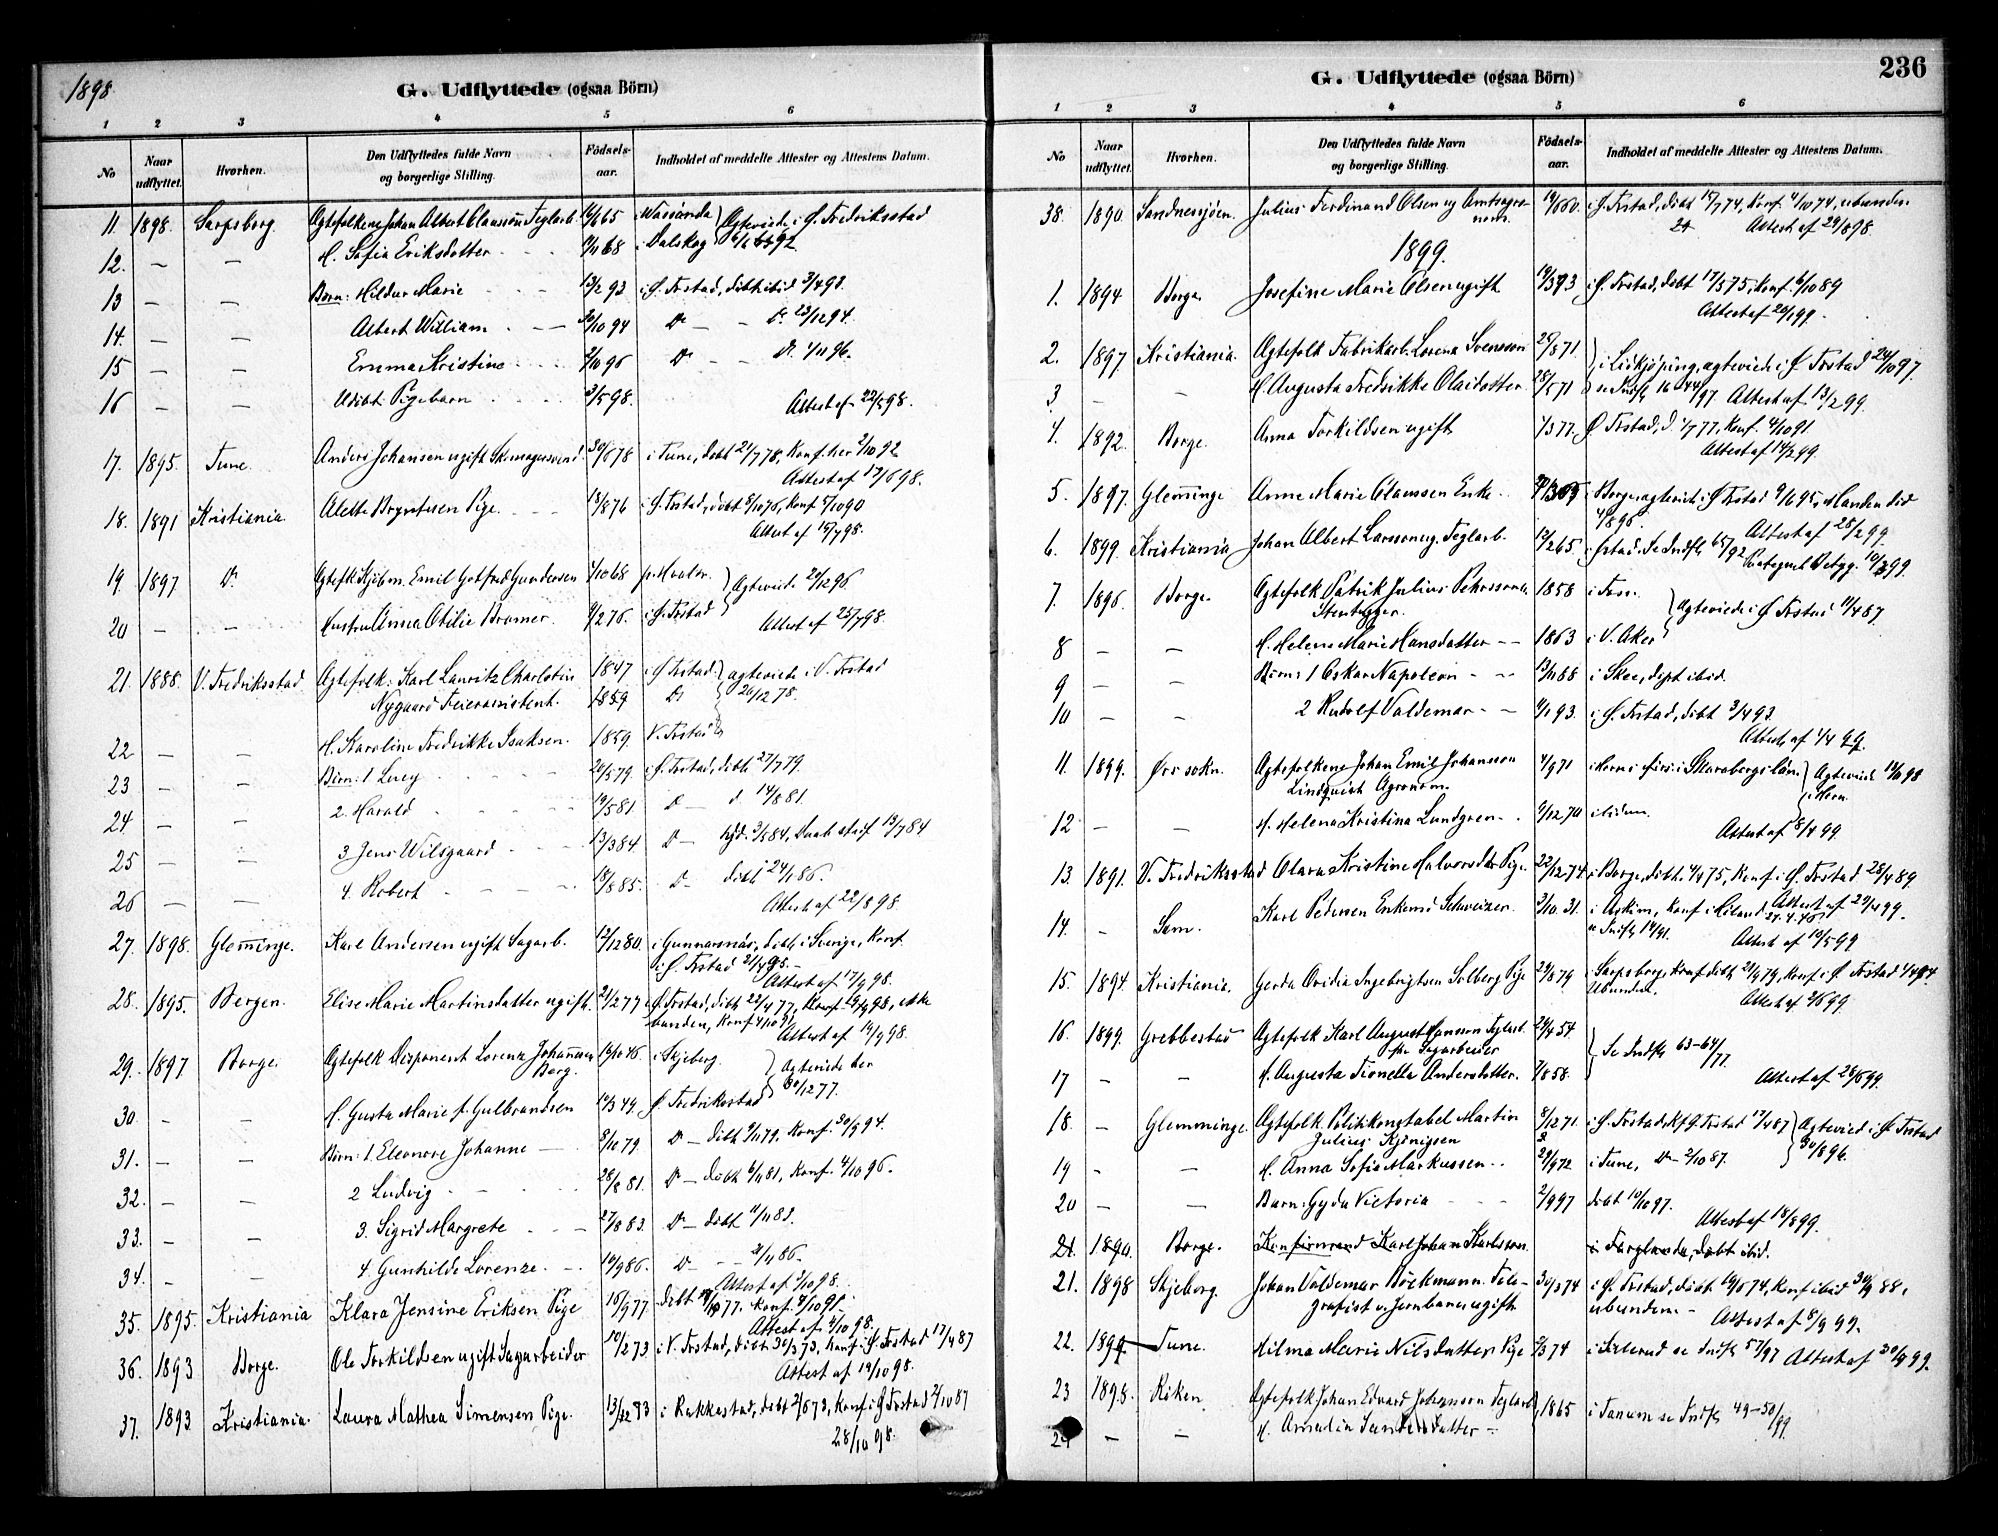 1898
G. Udflyttede (ogsaa Börn)
1 2 3 4 5 6
No
Naar udflyttet.
Hvorhen.
Den Udflyttedes fulde Navn og borgerlige Stilling.
Födsels-aar.
Indholdet af meddelte Attester og Attestens Datum.
11. 1898. Sarpsborg. Ægtefolkene Johan Albert Claussøn Teglarb. 65 i Wassända Ægteviede i Ø. Fredriksstad
12. — — H. Sofia Eriksdatter 68 i Dalskog
13 — — Børn: Hildur Marie 13/2 93 i Ø. Frstad, døbt ibid 3/4 93.
14. — — Albert William 30/10 94 Do — Do 23/12 94.
15 — — Emma Kristine 2/10 96 Do — Do 1/11 96.
16 — — Udøbt Pigebarn 3/5 98. Attest af 22/5 98.
17. 1895. Tune. Anders Johansen ugift Skomagersvend. 30/6 78 i Tune, døbt 21/7 78, Konf. her 2/10 92
Attest af 17/6 98.
18. 1891 Kristiania Alette Bryntesen Pige 18/8 76 i Ø. Frstad, døbt 8/10 76, Konf 5/10 90
Attest af 15/7 98.
19. 1897 Do Ægtefolk Kjøbm. Emil Gotfred Gundersen 1/10 68 paa Hvaler. Ægteviede 29/12 96
20 — — Hustru Anna Otilie Bramer. 9/2 76. i Ø. Frstad Attest af 25/7 98.
21. 1888. V. Fredriksstad Ægtefolk: Karl Lauritz Charlotin 1847 i Ø Frstad. Ægteviede i V. Frstad
Nygaard Feierassistent. 1859 Do 26/12 78.
22 — — H. Karoline Fredrikke Isaksen. 1859. V. Frstad
23 — — Børn: 1 Lucy 26/5 79. i Ø. Frstad, døbt 27/7 79.
24 — — 2. Harald 19/5 81. Do — d. 14/8 81.
25 — — 3 Jens Wilsgaard 13/3 84 Do — Hjd. 3/5 84, Daab stadf 13/7 84
26 — — 4. Robert 18/8 85. Do døbt 24/1 86.
Attest af 22/8 98.
27. 1898. Glemminge. Karl Andersen ugift Sagarb. 12/12 80. i Gunnarsnäs, døbt i Sverige, Konf.
i Ø. Frstad 21/4 95.
Attest af 17/9 98.
28. 1895. Bergen. Elise Marie Martinsdatter ugift. 24/2 77 i Ø. Frstad, døbt 22/4 77,
bunden, Konf 4/10 91
Attest af 14/9 98.
29. 1897 Borge. Ægtefolk Disponent Lorenz Johannesen 19/10 46. i Skjeberg. Ægteviede her
Berg. 30/12 77.
30. — — H. Gusta Marie f. Gulbrandsen 10/3 49. Ø. Fredriksstad
31. — — Børn: 1. Eleonore Johanne 8/10 79. Do — døbt 9/11 79. Konf. 30/9 94.
32. — — 2 Ludvig 28/8 81. Do — døbt 6/11 81, Konf. 4/10 96.
33. — — 3. Sigrid Margrete 27/8 83. Do — døbt 11/11 83.
34. — — 4 Gunhilde Lorenze. 19/9 86. Do — — 2/11 86.
Attest af 3/10 98.
35. 1895. Kristiania Klara Jensine Eriksen Pige 16/9 77 døbt 77. Konf. 4/10 91
Attest af 4/10 98.
36. 1893 Borge. Ole Torkildsen ugift Sagarbeider 10/2 73 i V. Frstad, døbt 30/3 73, Konf i Ø. Frstad 17/4 87
Attest af 19/10 98.
37. 1893 Kristiania. Laura Mathea Simensen Pige. i Rakkestad, døbt 2/6 73, Konf. i Ø Frstad 2/10 87
28/10 98.
236
G. Udflyttede (ogsaa Börn)
1 2 3 4 5 6
No
Naar udflyttet.
Hvorhen.
Den Udflyttedes fulde Navn og borgerlige Stilling.
Födsels-aar.
Indholdet af meddelte Attester og Attestens Datum.
38. 1890. Sandnessjøen. Julius Ferdinand Olsen ug Amtsagro-
nom. 19/6 60. i Ø. Frstad, døbt 15/7 74, Konf. 4/10 74, ubunden
Attest af 29/8 98.
1899.
1. 1894 Borge. Josefine Marie Olsen ugift 19/3 73 i Ø. Frstad, døbt 17/5 75, Konf. 6/10 89
Attest af 20/1 99.
2. 1897 Kristiania. Ægtefolk Fabrikarb. Lorens Svensson 25/8 71. i Lidkjøping, ægteviede i Ø Frstad 24/10 97.
3 — — H. Augusta Fredrikke Olaidotter. se Indfl 16 44/97 Attest af 13/2 99.
4. 1892. Borge. Anna Torkildsen ugift 1/3 77. Ø Frstad, d. 77, Konf. 4/10 91
Attest af 14/2 99.
5. 1897. Glemminge Anne Marie Claussen Enke. i Borge, ægteviet i Ø Frstad 9/6 95, Manden død
4/8 96. Attest af 25/2 99.
6. 1899. Kristiania Johan Albert Larsson ug. Teglarb. 12/2 65. i Ørstad. Se Indfl 65/92
7. 1896. Borge. Ægtefolk Patrik Julius Pehrsson 1858 i Foss. Ægteviede i Ø Frstad 11/4 87.
Stenhugger.
8 — — H. Helene Marie Hansdatter — 1863 i V. Aker
9 — — Børn: 1 Oskar Napoleon — 13/11 88 i Skee, døpt ibid.
10 — — 2 Rudolf Valdemar — 4/1 93. i Ø. Frstad, døbt 3/4 93.
Attest af 1/4 99.
11. 1899. Ørs sokn. Ægtefolkene Johan Emil Johansson 4/9 71 i Horns førs: i Skaraborgs län. Ægteviede
Lindquist Agronom. i Horn.
12 — — H. Helena Kristina Lundgren 9/12 70 ibidem.
Attest af 8/4 99.
13. 1891. V. Fredriksstad Olava Kristine Halvorsdtr Pige. 22/12 74 i Borge, døbt. 4/4 75, Konf. i Ø. Frstad 28/4 89.
Attest af 29/4 99.
14. — Sem. Karl Pedersen Enkemd Schweizer. 3/10 31. i Askim, Konf i Hiland 27.4.46
se Indfl 14/91. Attest af 10/5 99
15. 1894. Kristiania. Gerda Ovidia Ingebrigtsen Solberg Pige 29/8 79 i Sarpsborg døbt 21/9 79, Konf. i Ø Frstad
Ubunden. Attest af 99.
16. 1899. Grebbestad Ægtefolk Karl August Hansson Teglarb. 54. Se Indfl 63-64/77.
fhv Sagarbeider
17 — — H. Augusta Fionetta Andersdotter. 7/8 58. Attest af 28/6 99.
18. — Glemminge. Ægtefolk Politikonstabel Martin 8/12 71. i Ø. Frstad Kf Ø. Frstad 17/4 87 Ægteviet i Ø Frstad
Julius Kjønigsen 30/8 96.
19 — — H. Anna Sofie Markussen 29/9 72 i Tune, Do — 2/10 87.
20 — — Barn: Gyda Victoria — 2/9 97 døbt 10/10 97.
Attest af 18/8 99.
21. 1890. Borge. Konfirmand Karl Johan Karlsson. i Færgelanda, døbt ibid.
21. 1898 Skjeberg. Johan Valdemar Bøckmann. Tele- 30/3 74 i Ø Frstad, døbt 74, Konf ibid 30/9 88,
grafist v. Jernbanen ugift ubunden.
Attest af 8/9 99.
22. Tune. Hilma Marie Nilsdatter Pige 74 i se Indfl 57/97 Attest af 30/9 99.
23 1898. Røken. Ægtefolk Johan Edvard Johansson Teglarb. 1865 i Tanum se Indfl 49-50/99.
24 — — H. Amalia —